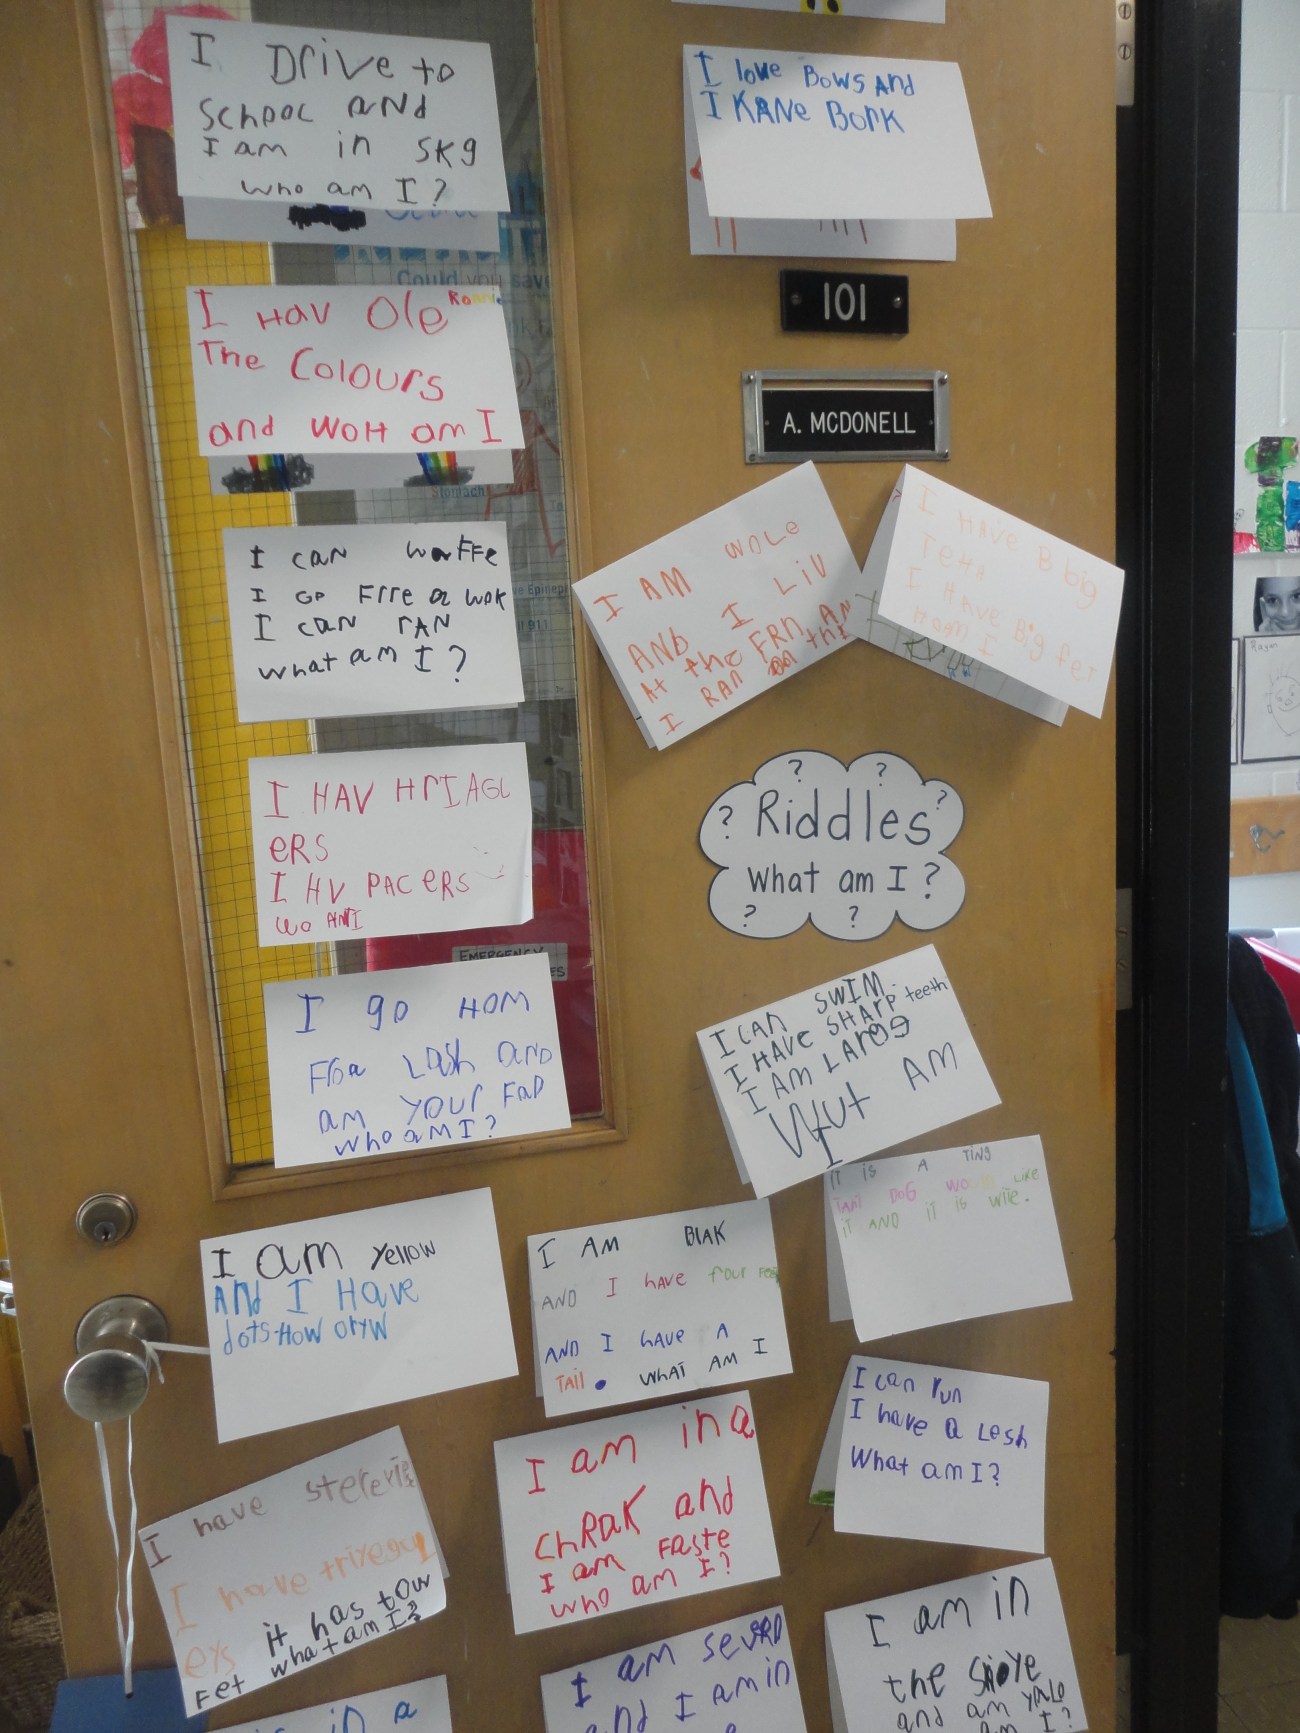 I Drive to
School and
I am in SKg
who am I?
I HAV Ole
Ronnie
The Colours
and WOH am I
I can waffe
I GO Frre a wok
I can ran
what am I?
I HAV HrIAGL
ERS
I HV PACERS
wo AM I
I go HOM
Floa Lash and
am your FaD
who am I?
I love Bows And
I KANe Bork
101
A. MCDONELL
I AM WOLE
AND I LIV
At the FRN AN
I RAN on thi
I HAVE B big
TeHt
I HAVE Big fet
Ham I
Riddles
What am I?
I CAN SWIM
I HAVE SHARP teeth
I AM LARGS
Wut AM
I
IT IS A TING
TANT DOG WO LIKE
IT AND IT IS WITE.
I AM BlAK
AND I HAVE four
AND I HAVE A
TAIL WHAT AM I
I am yellow
And I Have
dots-How
I can run
I have a Lesh
What am I?
I have
I have
eys it has tow
Fet what am I?
I am in a
ChRaK and
I am FaSte
who am I?
I am
and I am in
I am in
the
and am
am I?
in a
EMERGENCY
Could you save
Stomach
911
Ragan